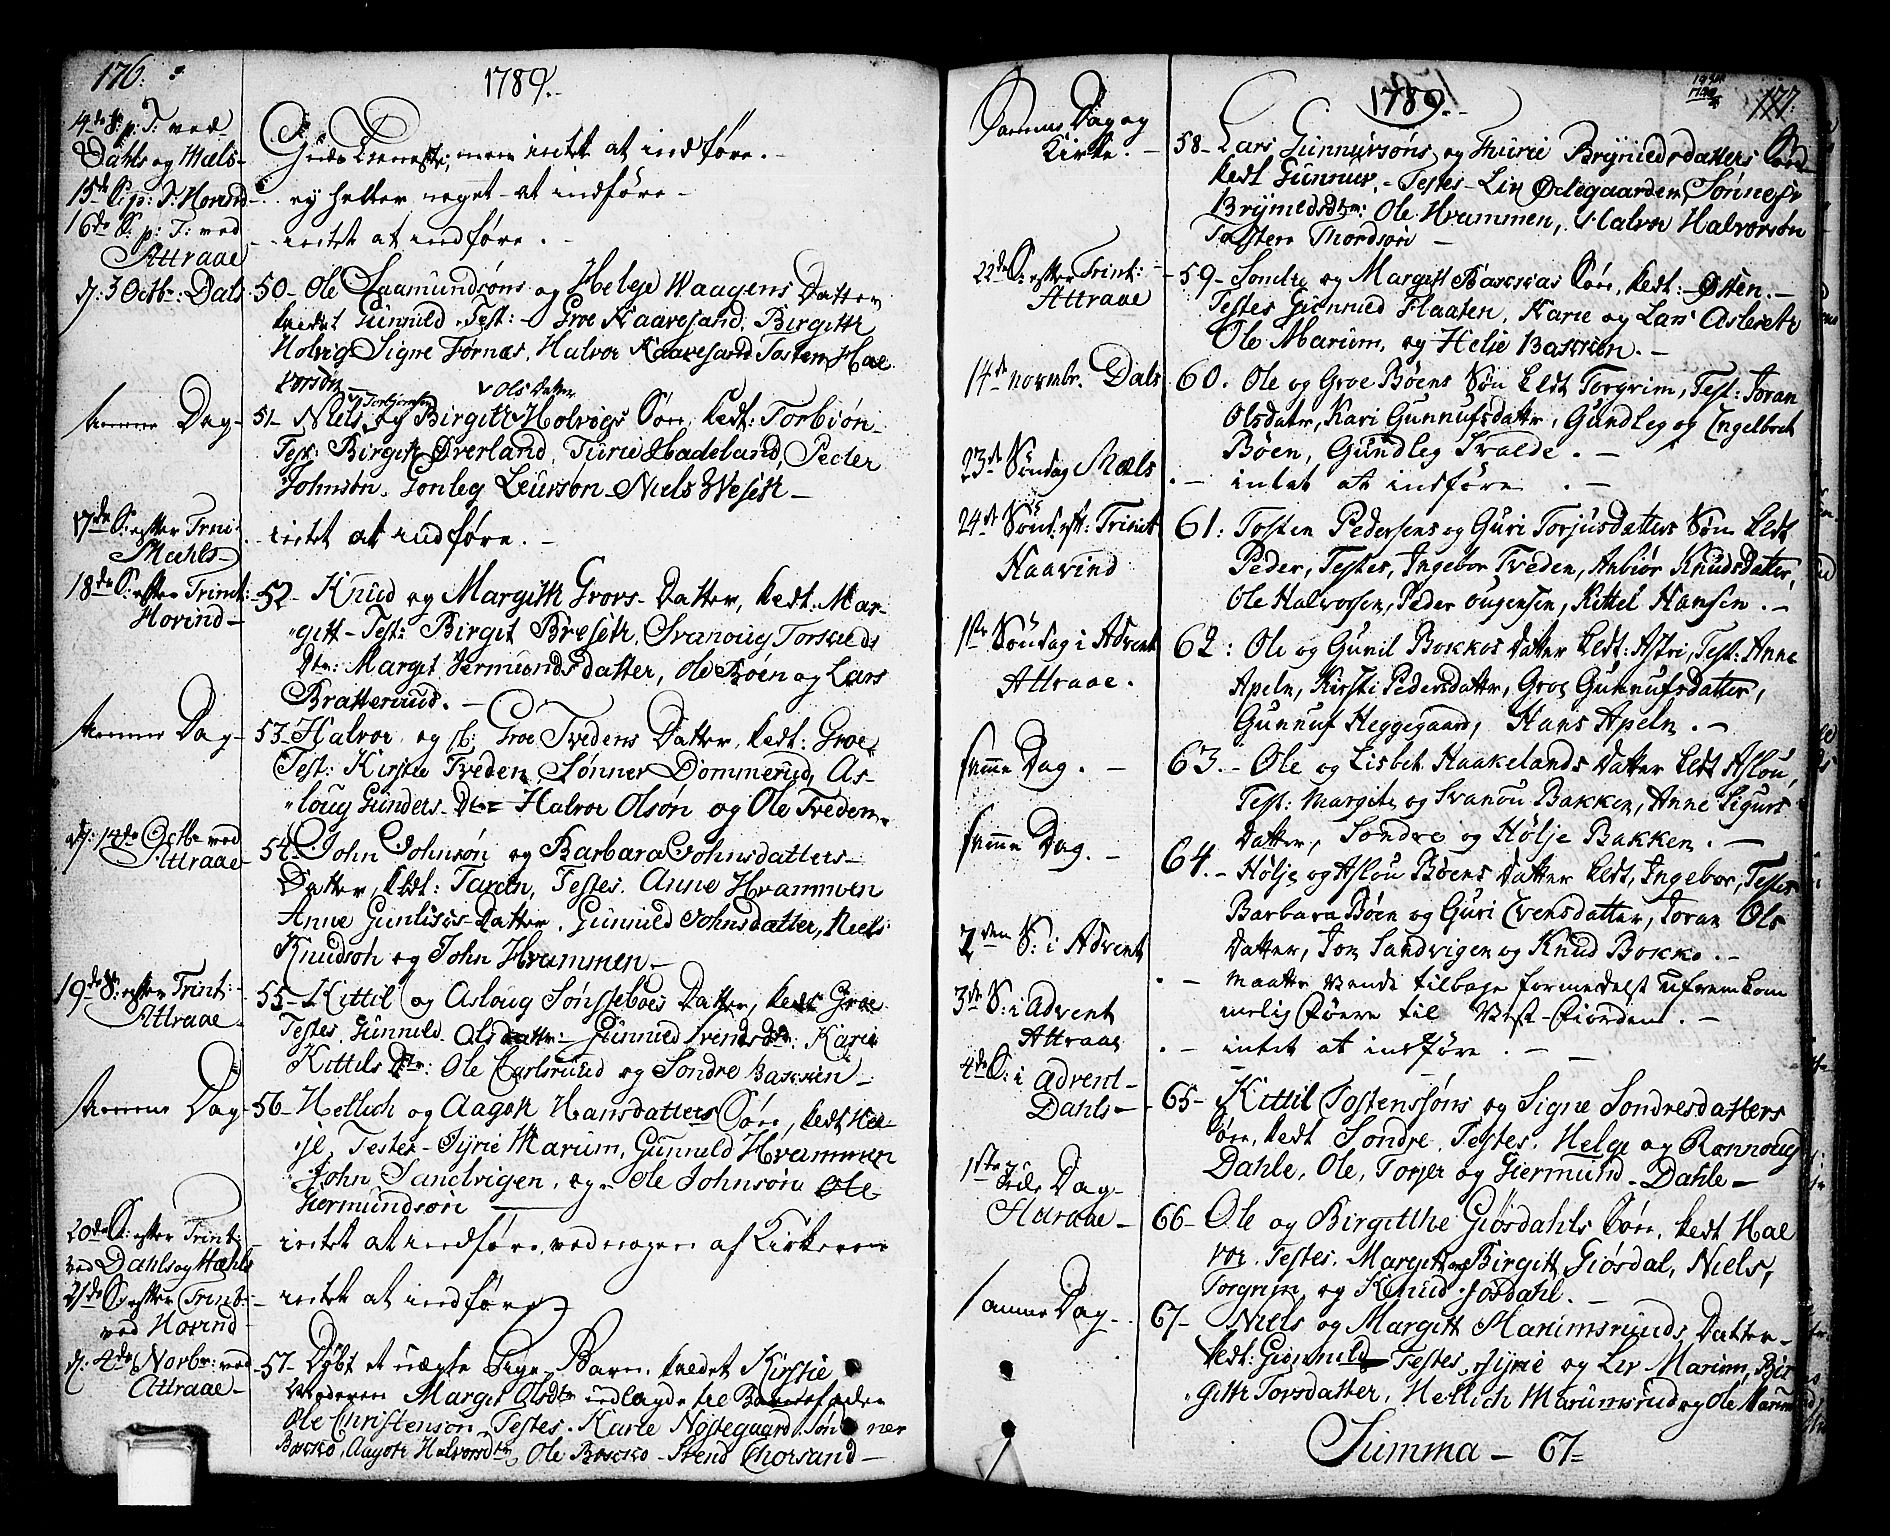 176.
1789.
14de S: p: T: ved
Dahls og Mæls-
intet at indføre.
15de S: p: T: Hovind
ey heller noget at indføre
16de S: p: T: ved
Attraae
intet at indføre.
d: 3 Octb: Dals
50- Ole Saamundsøns og Helge Waagens Datter
kedet Gunnuld. Test: Groe Kaavesand, Birgitte
Holvig Signe Fornæs, Halvor Kaavesand Tosten Hal
vorsøn
Samme Dag
Torbjornsen
Ols Datter
51- Niels og Birgith Holvigs Søn, kedt: Torbiøn
Test: Birgith Øverland, Turie Hadeland, Peder
Johnsøn. Gonleg Leursøn Niels Weseth
17de S: efter Trini:
Mæhls
intet at indføre.
18de S: efter Trinit:
Hovind
52- Knud og Margith Grovs Datter, kedt. Mar-
gitt- Test: Birgit Bøeseth, Svanoug Torseds
Dtr: Margit Germundsdatter, Ole Bøen og Lars
Bratterud.
Samme Dag
53- Halvor og sl: Groe Tvedens Datter, kedt: Groe,
Test: Kirstie Tveden, Sønner Dommerud, As-
loug Gunders Dtr Halvor Olsøn og Ole Tveden.
d: 14de Octb ved
Attraae
54- John Johnsøn og Barbara Johnsdatters
Datter, kedt: Taren, Testes. Anne Hvammen
Anne Datter. Gunnild Johnsdatter, Niels
Knudsøn og John Hvammen
19de S: efter Trint:
Attraae
55- Kittil og Asloug Sønsteboes Datter, kedt Groe
Testes. Gunnuld Olsdatter Gunnild Svends Dtr: Karie
Kittils Dtr: Ole Carlsrud og Søndre Backen
Samme Dag
56- Hellich og Aagoth Hansdatters Søn, kedt Hel-
je, Testes- Syrie Marum, Gunnuld Hvammen
John Sandvigen, og Ole Johnsøn Ole
Giermundsøn
20de S: efter Trint:
ved Dahls og Mæhls
intet at indføre ved nogen af Kirkerne
21de S: efter Trint:
ved Hovind
intet at indføre
d: 4de Novbr: ved
Attraae
57- Døbt et uægte Pige Barn, kedet Kirstie
Moderen Margit Olsdtr udlagde til Barnefader
Ole Christenson. Testes. Karie Nøstegaard, Sønner
Bocko, Aagoth Halvorsdtr, Ole Bocko Svend Thorsand
1789.
177.
Samme Dag og
Kirke.
58- Lars Gunnursøns og Turie Brynildsdatters Søn
kedt Gunnur. Testes- Liv Ødegaarden, Sønnev
Brynildsdtr: Ole Hvammen, Halvor Halvorsøn
Tosten Thordsøn
22de S: efter Trint:
Attraae
59- Sondre og Margitt Backas Søn, kedt: Østen.
Testes Gunnild Flaaten, Karie og Lars Asleseth
Ole Marium, og Helje Bakken.
14de Novembr. Dals
60. Ole og Groe Bøens Søn kedt Torgrim, Test: Joran
Olsdatr, Kari Gunnufsdattr, Gundleg og Engelbret
Bøen, Gundleg Svalde.
23de Søndag Mæls
intet at indføre
24de Sønd: eft: Trinit
Haavind
61: Tosten Pedersens og Guri Torjusdatters Søn kedt
Peder, Testes, Ingebor Tveden, Anbiør Knudsdatter,
Ole Halvorsen, Peder Eugensen, Kittel Hansen.
1ste Søndag i Advent
Attraae.
62: Ole og Gunil Bokkos Datter kedt: Astri, Test: Anne
Apeln, Kirsti Pedersdattr, Groe Gunnufsdatter,
Gunnuf Heggegaard, Hans Apeln.
samme Dag.
63.- Ole og Lisbet Haakelands Datter kedt Aslou,
Test: Margite og Svanou Bakken, Anne Sigurs
Datter, Søndre og Hølje Bakken.
samme Dag.
64.- Hølje og Aslou Bøens Datter kedt, Ingebor, Testes
Barbara Bøen og Guri Evensdatter, Joran Ols
Datter, Jon Sandvigen og Knud Bokko.
2den S: i Advent
maatte vende tilbage formedelst ufremkom
melig Føere til Vest-Fiorden.
3de S: i Advent
Attraae
intet at indføre.
4de S: i Advent
Dahls
65- Kittil Tostensøns og Signe Sondresdatters
Søn, kedt Sondre, Testes. Helge og Rønnoug
Dahle, Ole, Torjer og Giermund Dahle
1ste Jule Dag
Attraae
66- Ole og Birgitthe Giøsdahls Søn, kedt Hal
vor. Testes. Margitt og Birgitt Giøsdal, Niels,
Torgrim og Knud Josdahl.
Samme Dag
67- Niels og Margitt Marimsruuds Datter
kedt: Gunnild Testes, Syrie og Liv Marium, Bir
gitte Torsdatter, Hellich Marumsrud og Ole Marum
Summa - 67